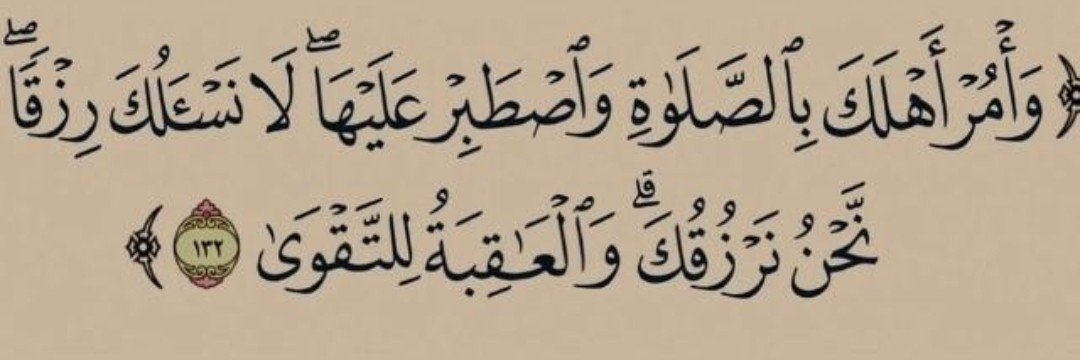 ﴿ وَأۡمُرۡ أَهۡلَكَ بِٱلصَّلَوٰةِ وَٱصۡطَبِرۡ عَلَيۡهَاۖ لَا نَسۡـَٔلُكَ رِزۡقٗاۖ
نَّحۡنُ نَرۡزُقُكَۗ وَٱلۡعَٰقِبَةُ لِلتَّقۡوَىٰ ١٣٢ ﴾